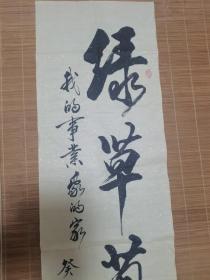 绿草
我的事業我的家 癸